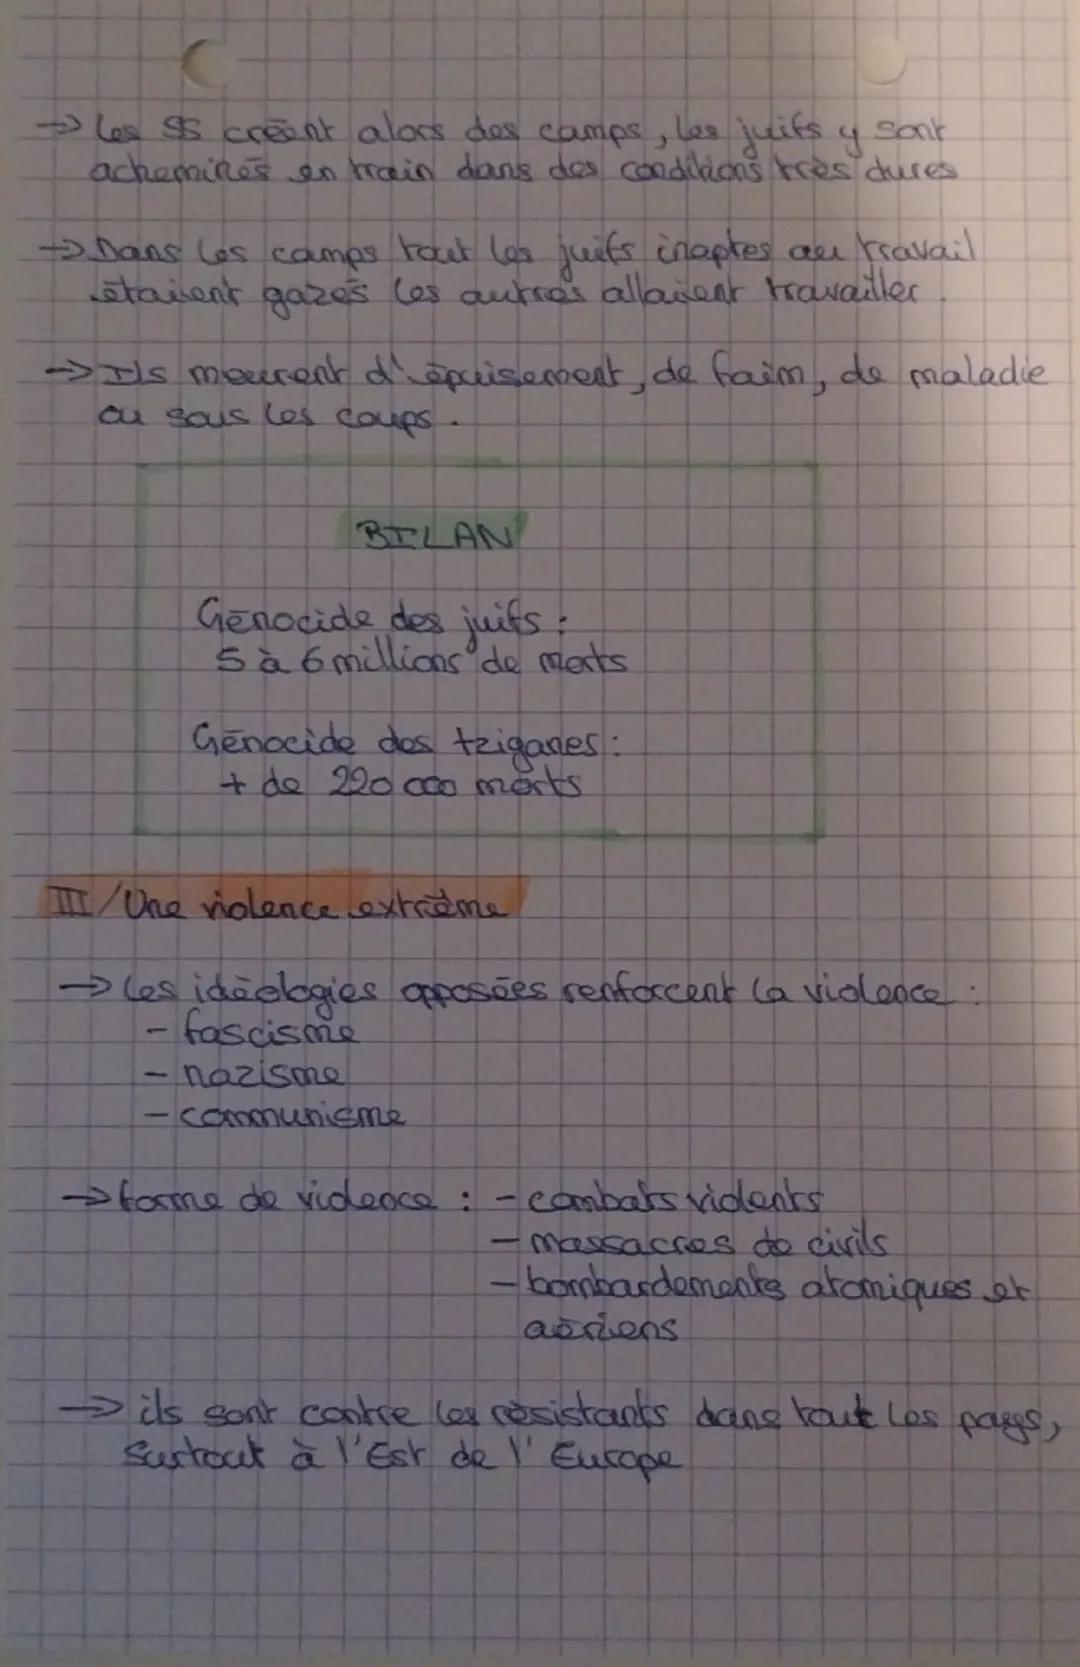 → Les SS créent alors des camps, les juifs y sont
acheminés en train dans des conditions très dures
→ Dans les camps tout les juifs inaptes au travail
étaient gazés les autres allaient travailler.
→ Ils meurent d'épuisement, de faim, de maladie
ou sous les coups.
BILAN
Génocide des juifs :
5 à 6 millions de morts
Génocide des tziganes :
+ de 220 000 morts
III/Une violence extrême
→ Les idéologies opposées renforcent la violence :
- fascisme
- nazisme
- communisme
→ forme de violence : - combats violents
- massacres de civils
- bombardements atomiques et
aériens
→ ils sont contre les résistants dans tout les pays,
surtout à l'Est de l'Europe